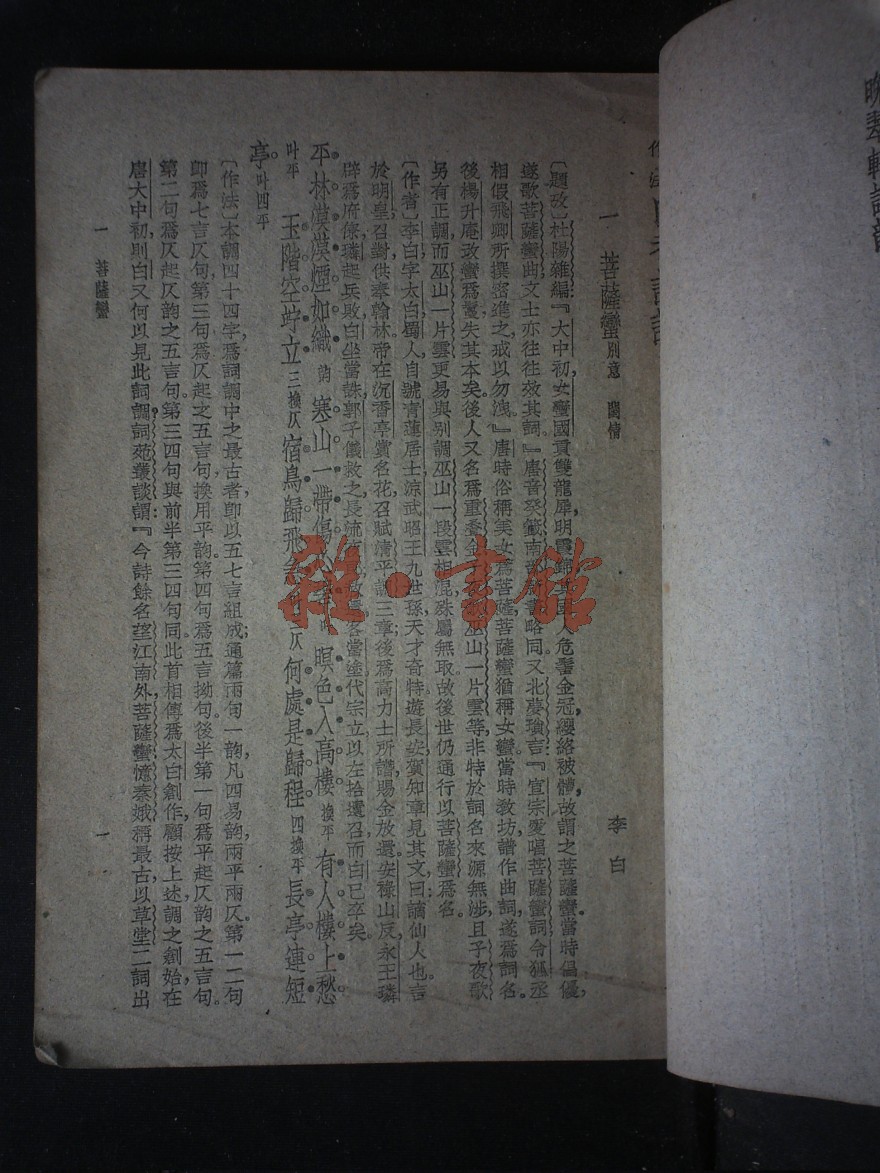 一　菩薩蠻 別意　閨情
李　白
〔題攷〕杜陽雜編『大中初女蠻國貢雙龍犀明霞錦其國人危髻金冠纓絡被體故謂之菩薩蠻當時倡優
遂歌菩薩蠻曲文士亦往往效其詞』唐音癸籤南部新書略同又北夢瑣言『宣宗愛唱菩薩蠻詞令狐丞
相假飛卿所撰密進之戒以勿洩』唐時俗稱美女爲菩薩菩薩蠻猶稱女蠻當時教坊譜作曲詞遂爲詞名
後楊升庵改蠻爲鬘失其本矣後人又名爲重疊金 巫山一片雲等非特於詞名來源無涉且子夜歌
另有正調而巫山一片雲更易與別調巫山一段雲相混殊屬無取故後世仍通行以菩薩蠻爲名。
〔作者〕李白字太白蜀人自號青蓮居士涼武昭王九世孫天才奇特遊長安賀知章見其文曰謫仙人也言
於明皇召對供奉翰林帝在沉香亭賞名花召賦清平調三章後爲高力士所譖賜金放還安祿山反永王璘
辟爲府僚璘起兵敗白坐當誅郭子儀救之長流 客當塗代宗立以左拾遺召而白已卒矣。
平林漠漠煙如織 韵 寒山一帶傷心碧 暝色入高樓 換平 有人樓上愁
叶平　玉階空竚立 三換仄 宿鳥歸飛急 仄 何處是歸程 四換平 長亭連短
亭。 叶四平
〔作法〕本調四十四字爲詞調中之最古者卽以五七言組成通篇兩句一韵凡四易韵兩平兩仄第一二句
卽爲七言仄句第三句爲仄起之五言句換用平韵第四句爲五言拗句後半第一句爲平起仄韵之五言句。
第二句爲仄起仄韵之五言句第三四句與前半第三四句同此首相傳爲太白創作顧按上述調之創始在
唐大中初則白又何以見此詞調詞苑叢談謂『今詩餘名望江南外菩薩蠻憶秦娥稱最古以草堂二詞出
一　菩薩蠻
一
雜·書館